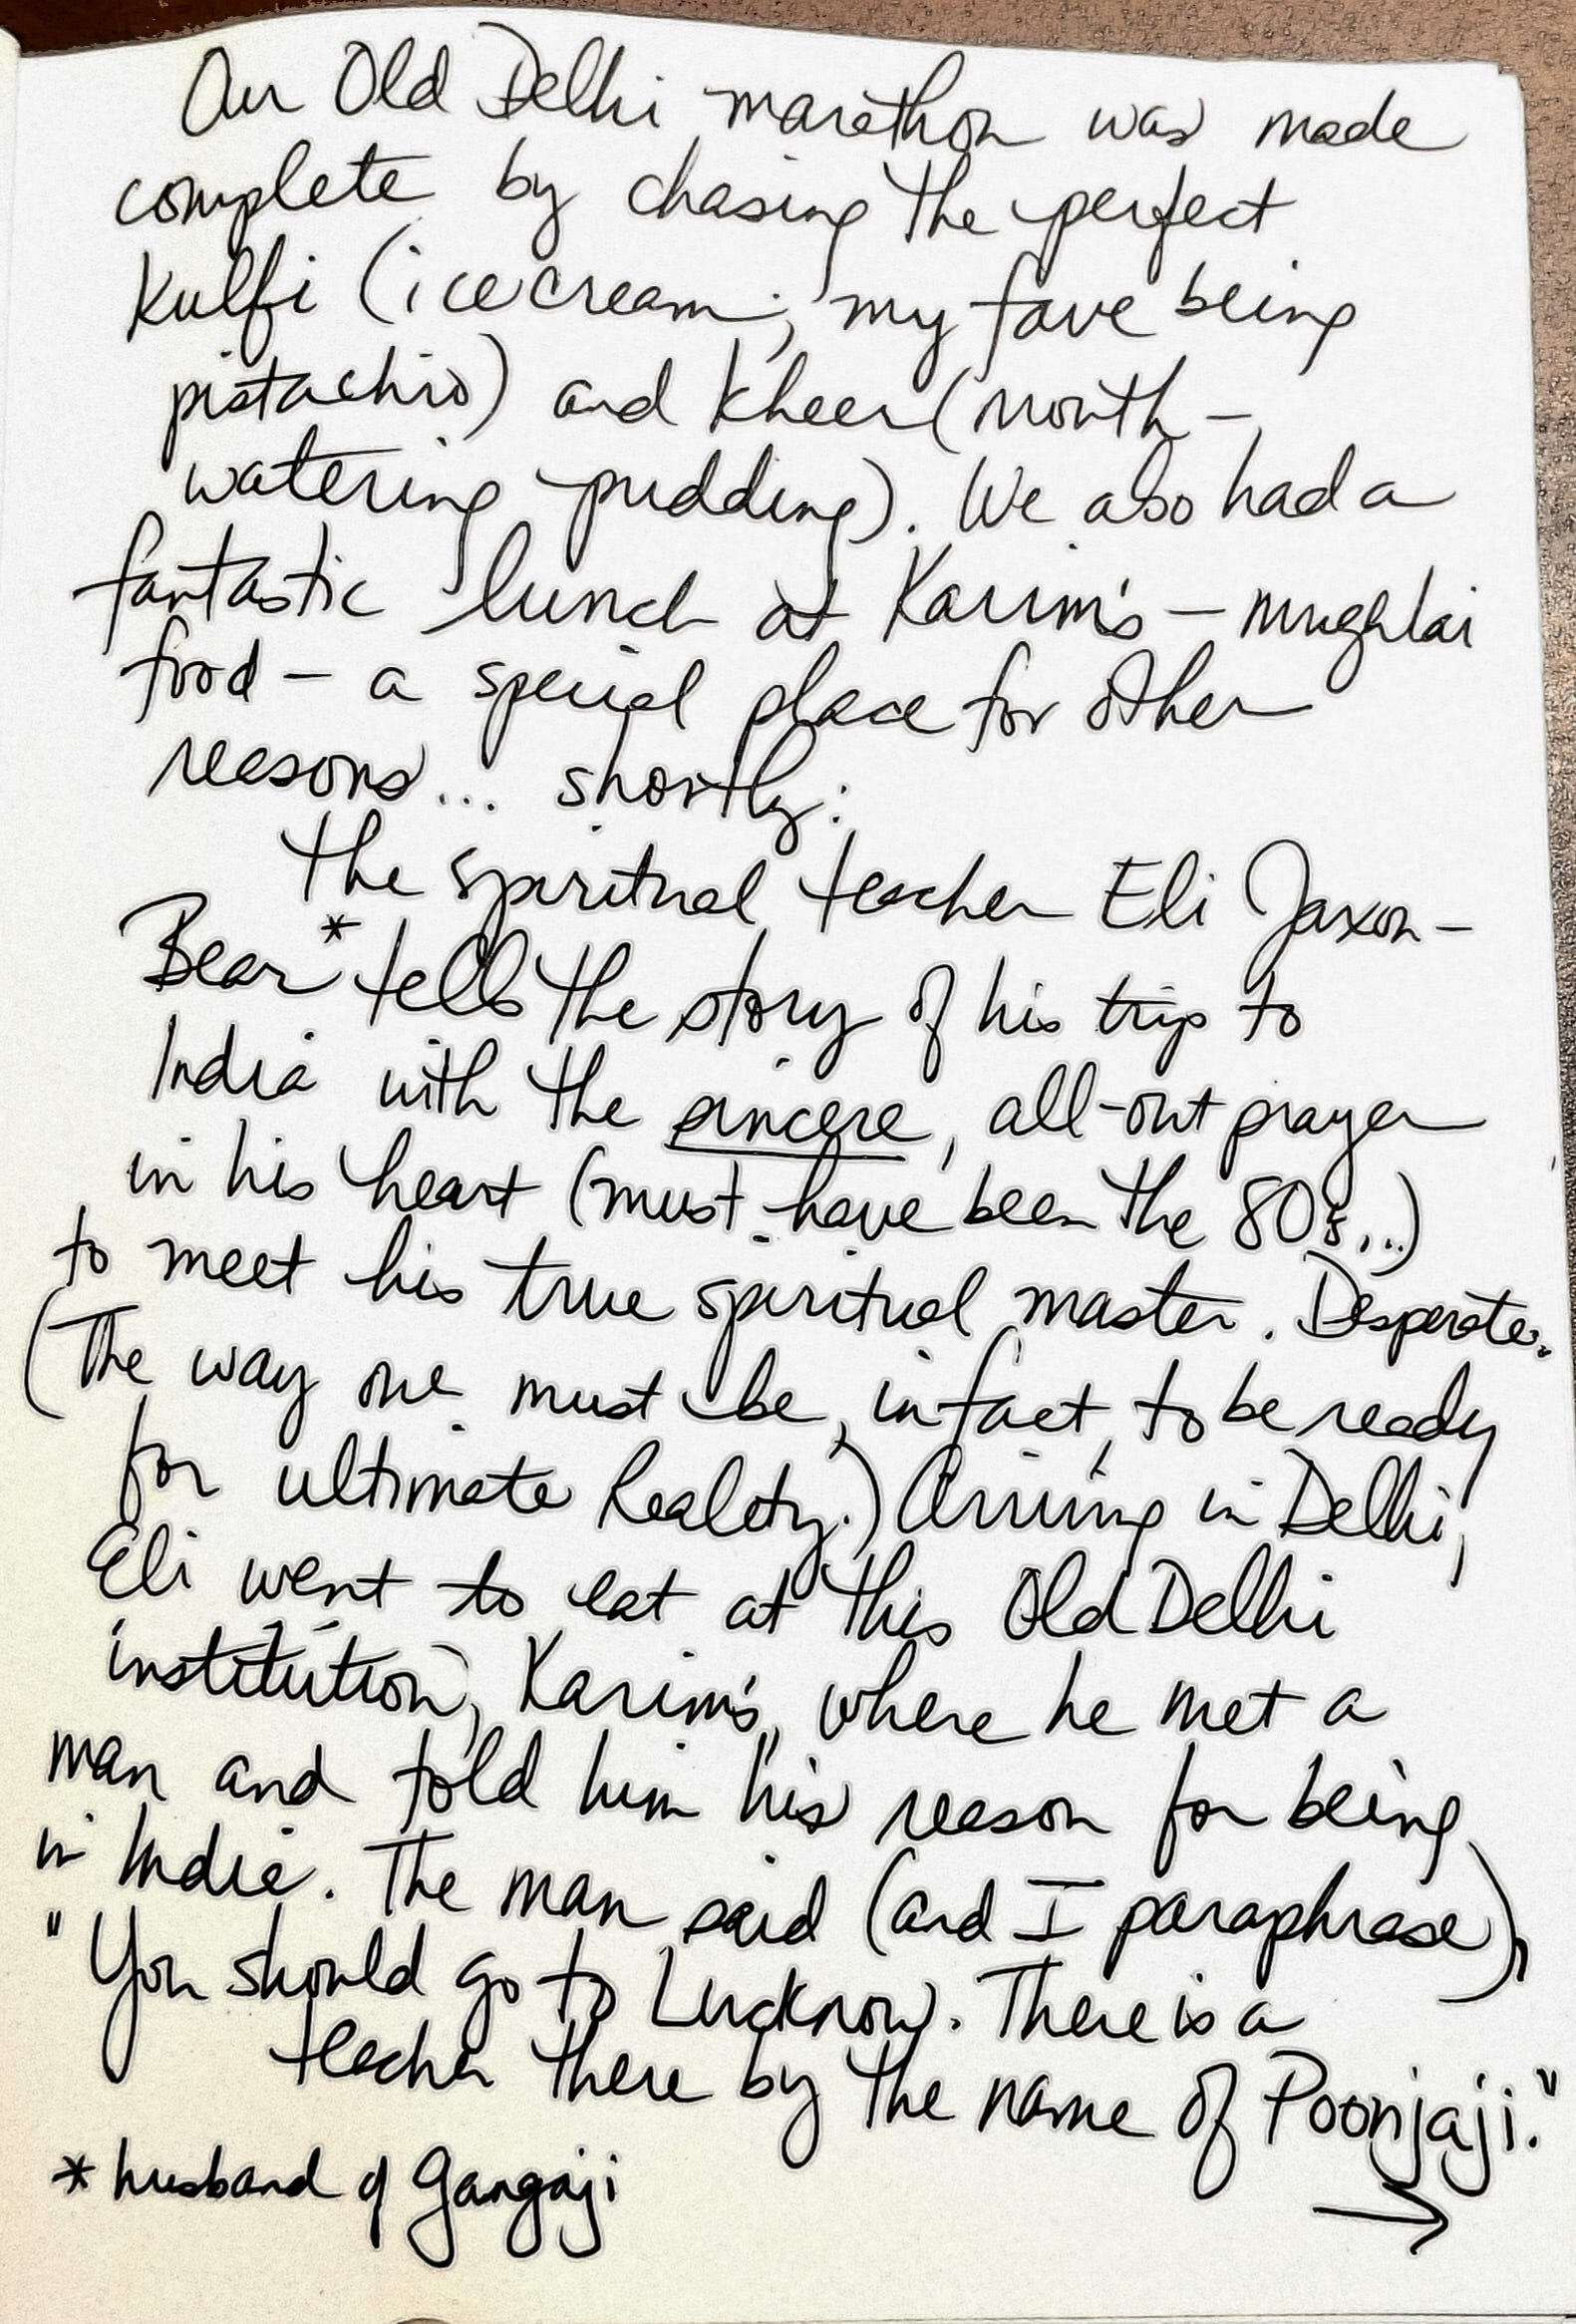 Our Old Delhi marathon was made
complete by chasing the perfect
Kulfi (ice cream; my fave being
pistachio) and kheer (mouth-
watering pudding). We also had a
fantastic lunch at Karim's – mughlai
food – a special place for other
reasons... shortly:
The spiritual teacher Eli Jaxon-
Bear* tells the story of his trip to
India with the sincere, all-out prayer
in his heart (must have been the 80s...)
to meet his true spiritual master. Desperate.
(The way one must be, in fact, to be ready
for ultimate Reality.) Arriving in Delhi,
Eli went to eat at this Old Delhi
institution, Karim's, where he met a
man and told him his reason for being
in India. The man said (and I paraphrase),
"You should go to Lucknow. There is a
teacher there by the name of Poonjaji."
* husband of Gangaji
→